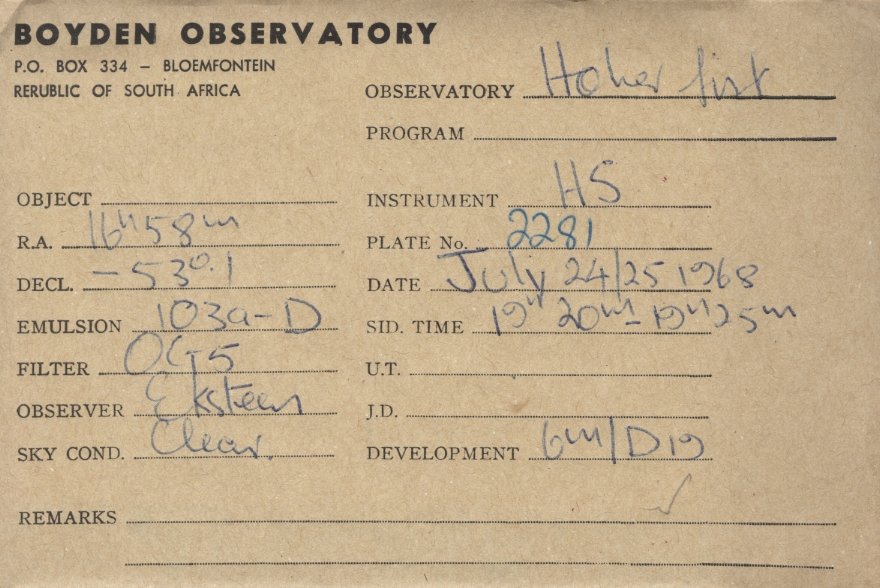 BOYDEN OBSERVATORY
P.O. BOX 334 – BLOEMFONTEIN
RERUBLIC OF SOUTH AFRICA
OBSERVATORY
PROGRAM
OBJECT
R.A. 16h 58m
DECL. -53°.1
EMULSION 103a-D
FILTER OG5
OBSERVER Eksteen
SKY COND. Clear.
INSTRUMENT HS
PLATE No. 2281
DATE July 24/25 1968
SID. TIME 19h 20m - 19h 25m
U.T.
J.D.
DEVELOPMENT 6m/D19
REMARKS